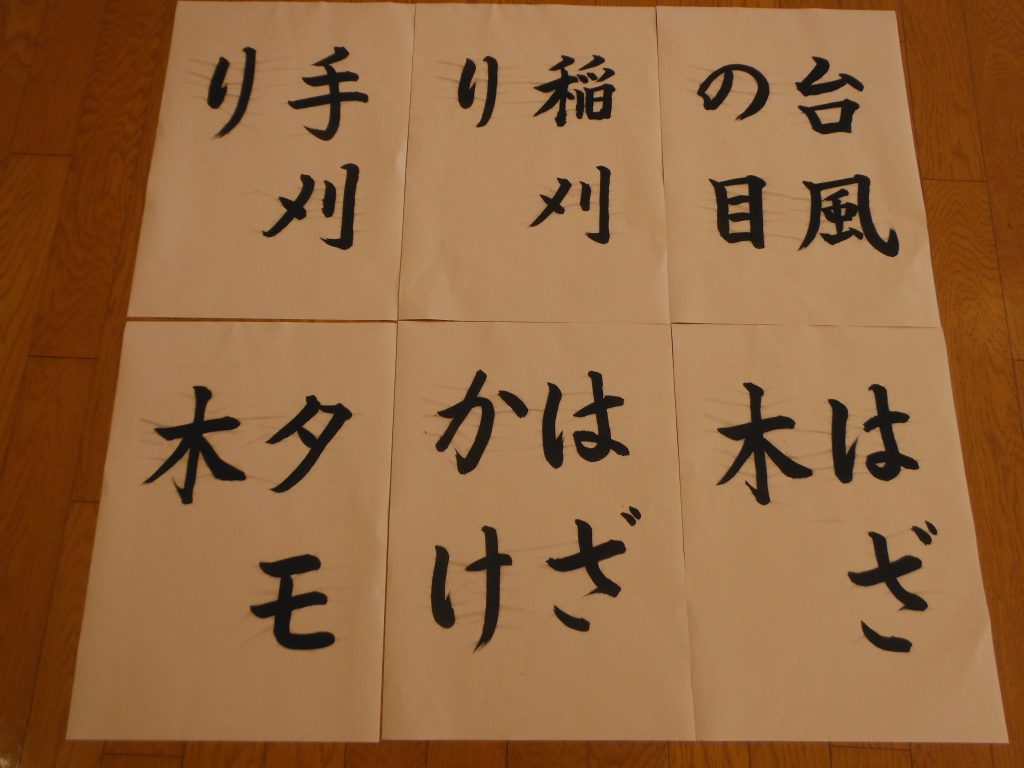 台風
の目
稲刈
り
手刈
り
はざ
木
はざ
かけ
タモ
木